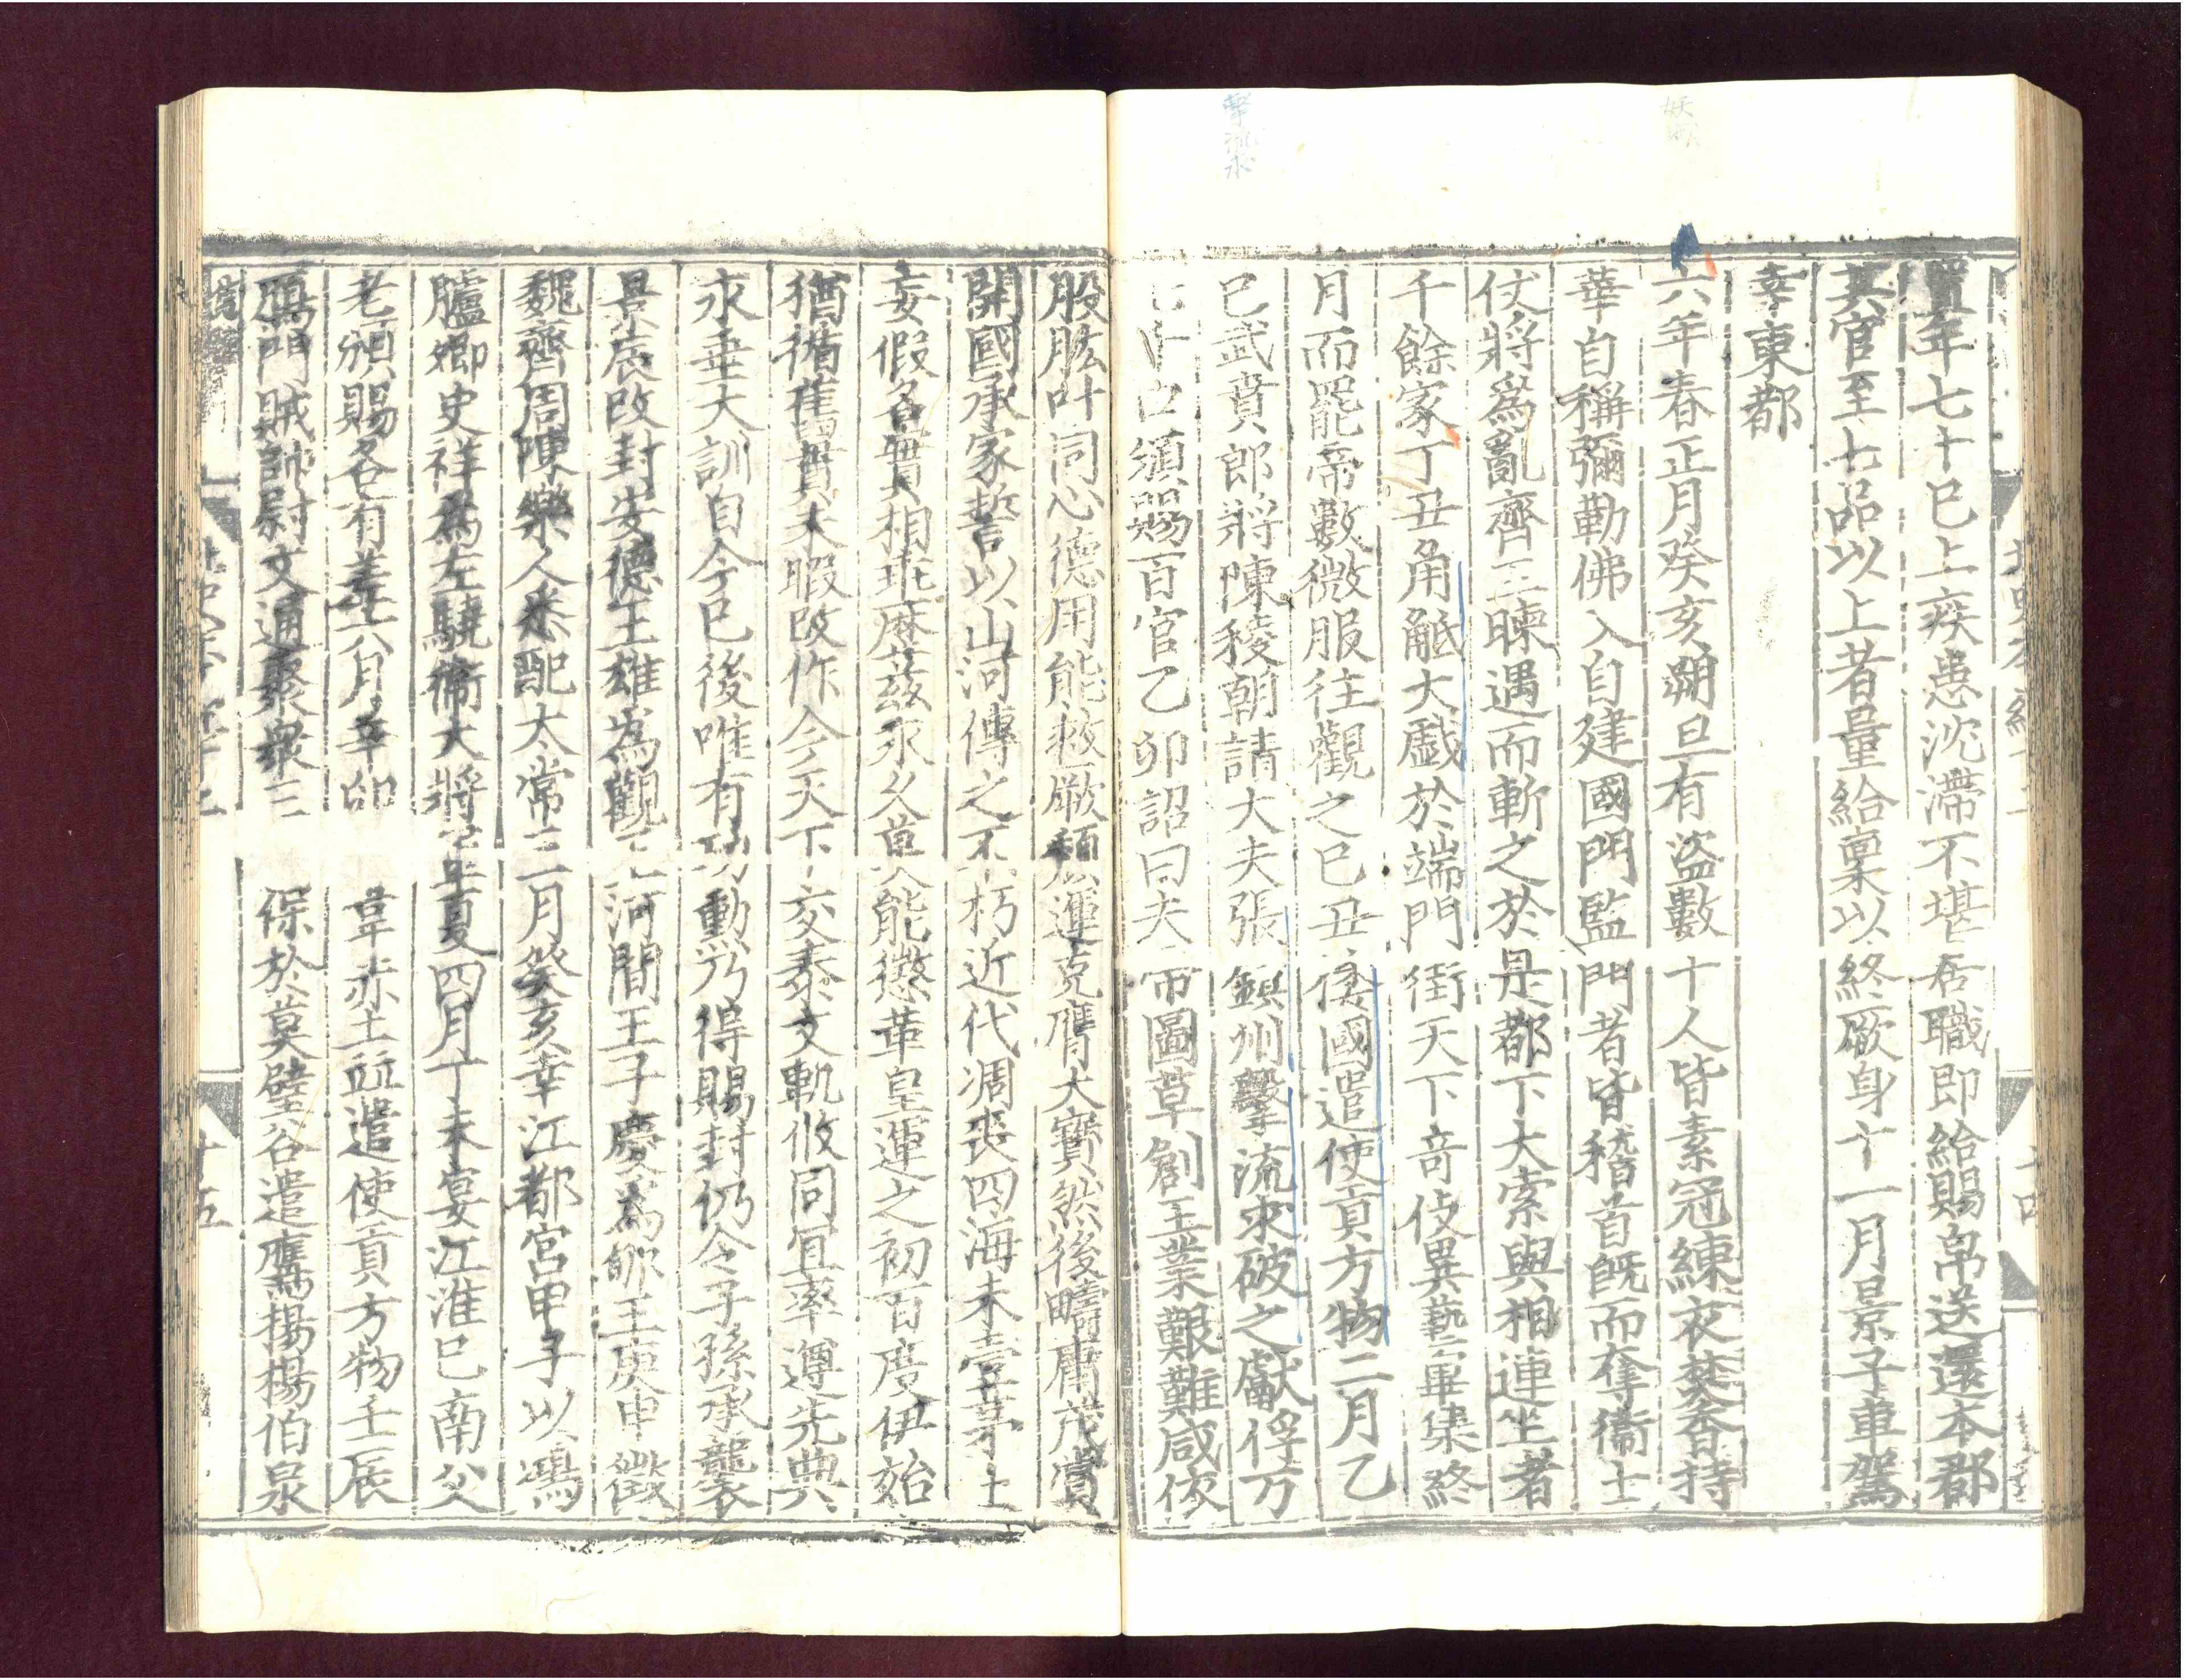 妖
擊流求
置年七十已上疾患沈滯不堪居職即給賜帛送還本郡
其官至七品以上者量給稟以終厥身十一月景子車駕
幸東都
六年春正月癸亥朔旦有盜數十人皆素冠練衣焚香持
華自稱彌勒佛入自建國門監門者皆稽首既而奪衞士
仗將爲亂齊王暕遇而斬之於是都下大索與相連坐者
千餘家丁丑角觝大戲於端門街天下奇伎異藝畢集終
月而罷帝數微服往觀之己丑倭國遣使貢方物二月乙
巳武賁郎將陳稜朝請大夫張鎮州擊流求破之獻俘万
七千口頒賜百官乙卯詔曰夫帝圖草創王業艱難咸依
股肱叶同心德用能救厥頽運克膺大寶然後疇庸茂賞
開國承家誓以山河傳之不朽近代凋喪四海未壹茅土
妄假名實相乖歷茲永久莫能懲革皇運之初百度伊始
猶循舊貫未暇改作今天下交泰文軌攸同宜率遵先典
永垂大訓自今已後唯有功勳乃得賜封仍令子孫承襲
景辰改封安德王雄爲觀王河間王子慶爲郇王庚申徵
魏齊周陳樂人悉配太常三月癸亥幸江都宮甲子以鴻
臚卿史祥爲左驍衞大將軍夏四月丁未宴江淮已南父
老頒賜各有差六月辛卯韋赤土並遣使貢方物壬辰
鴈門賊帥尉文通聚衆三保於莫壁谷遣鷹揚楊伯泉